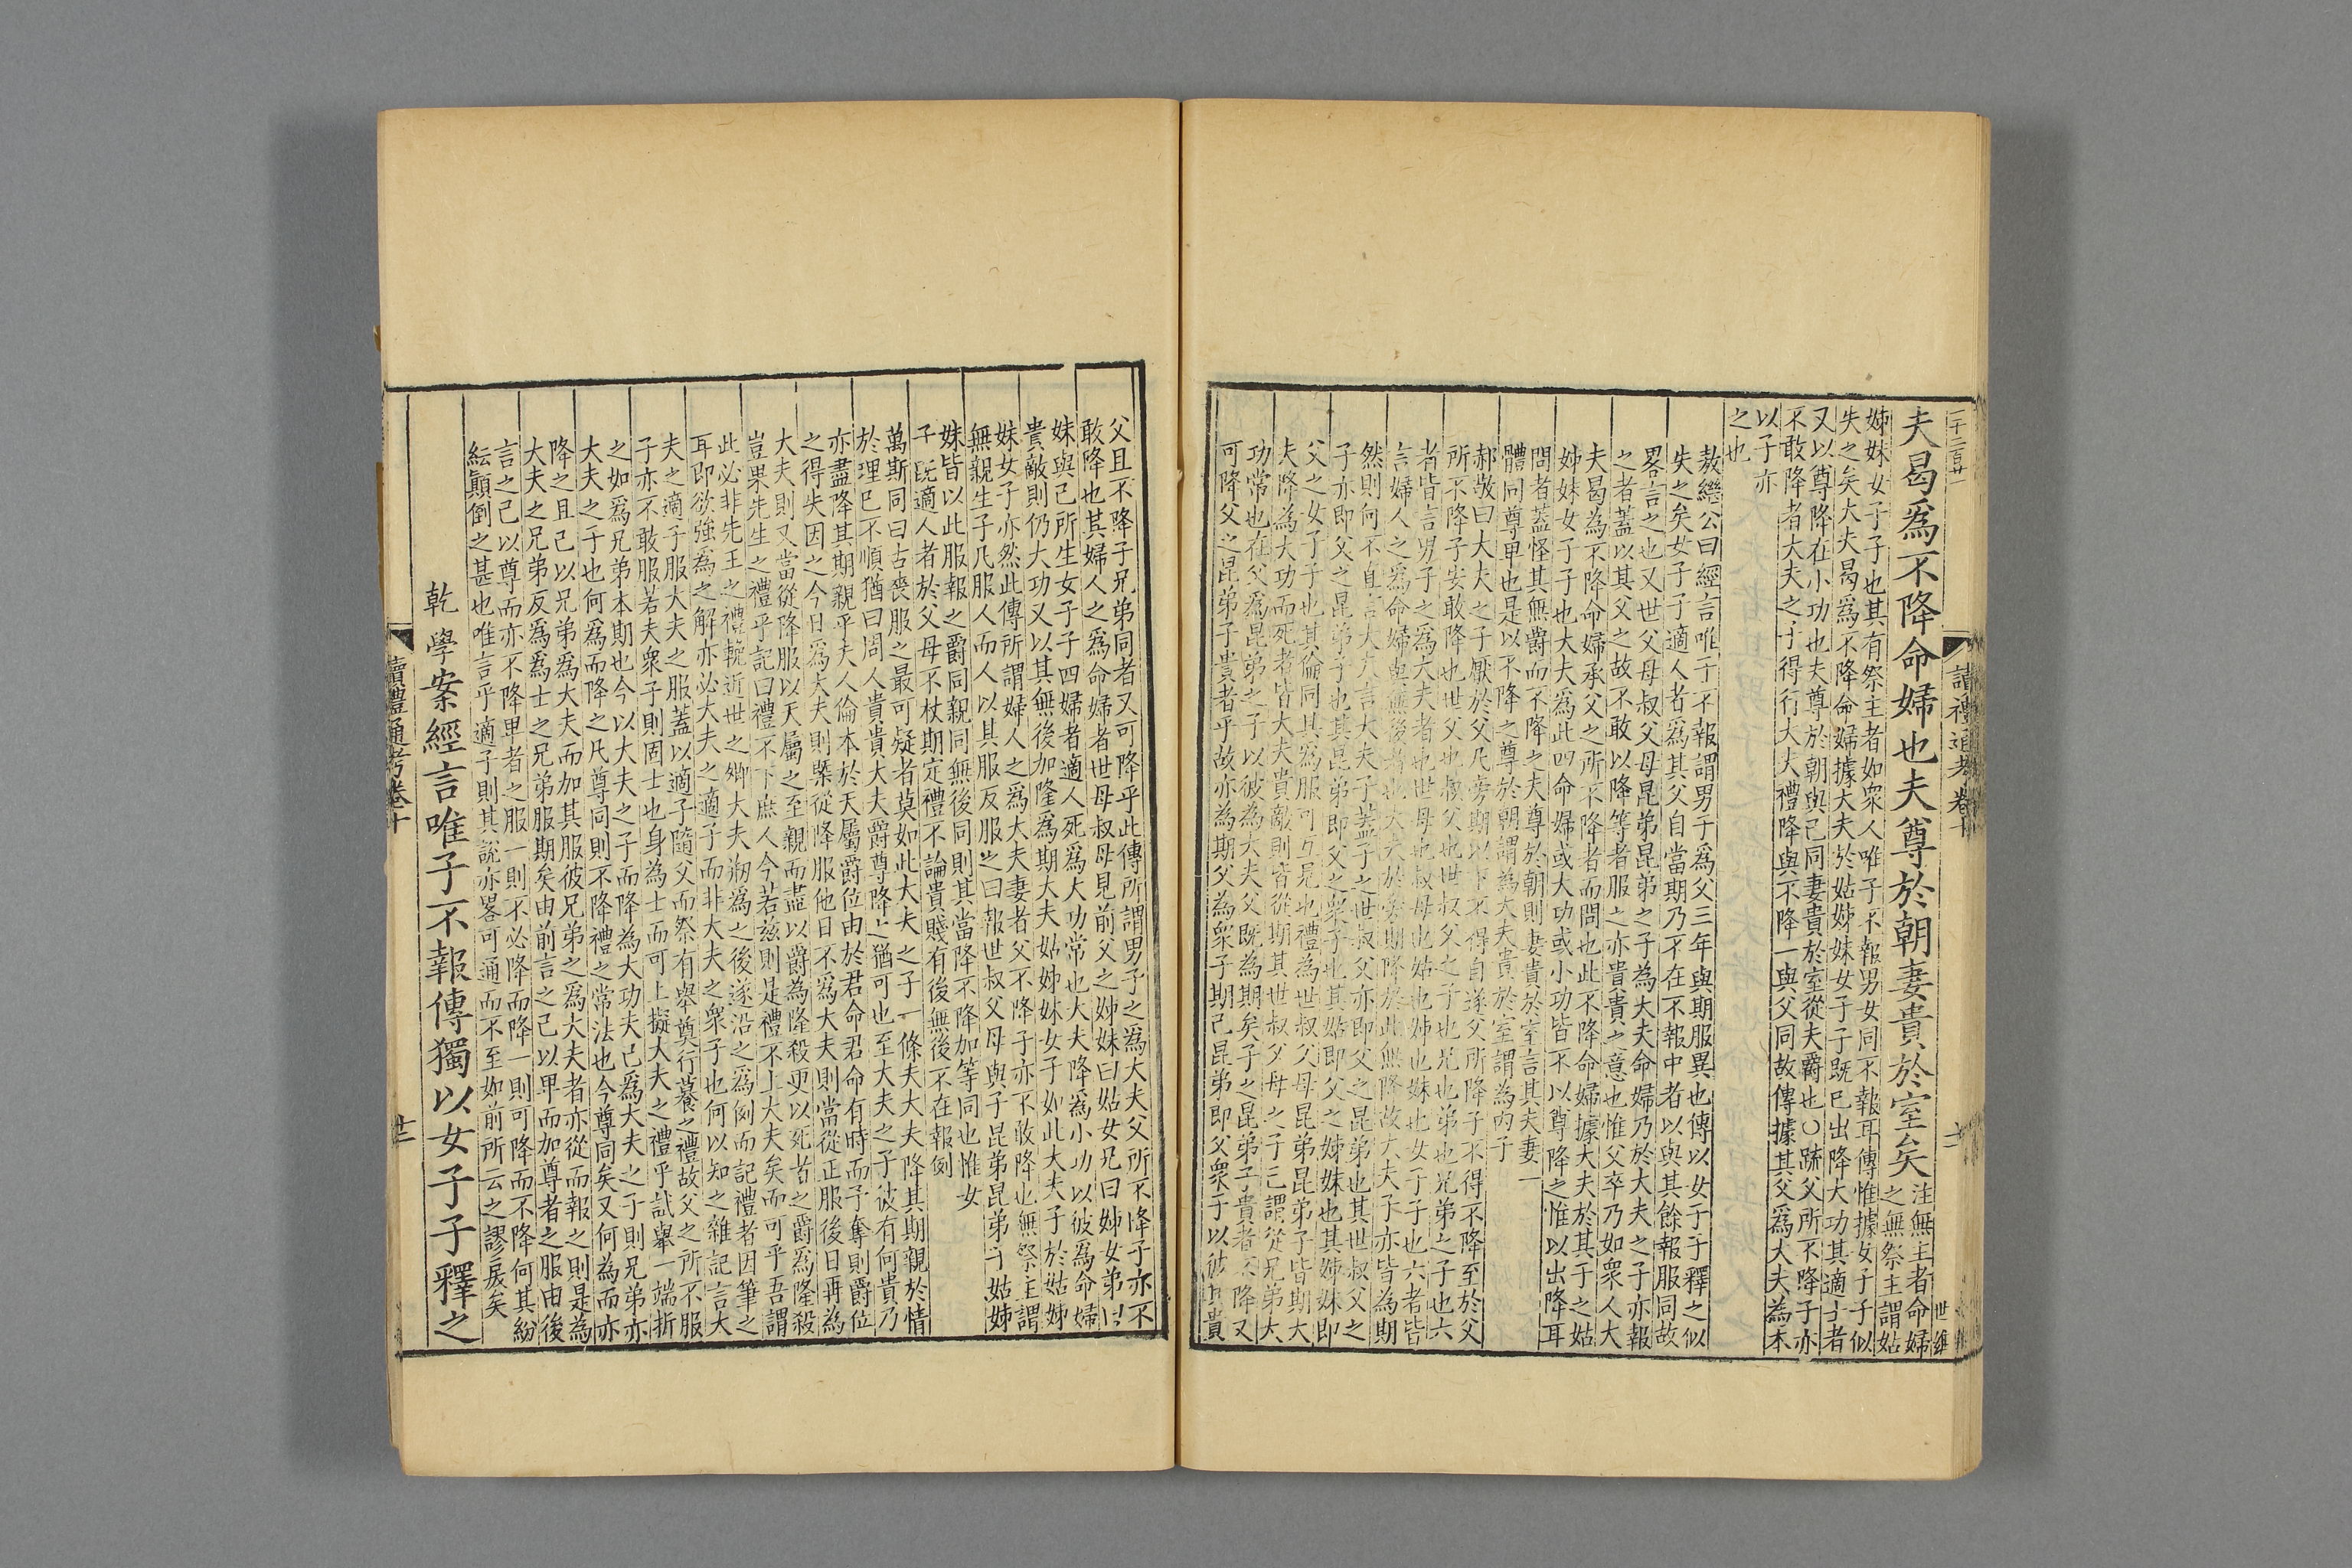 二千二百廿一
讀禮通考卷十
夫曷爲不降命婦也夫尊於朝妻貴於室矣
注無主者命婦
之無祭主謂姑
姊妹女子子也其有祭主者如衆人唯子不報男女同不報耳傳惟據女子子似
失之矣大夫曷爲不降命婦據大夫於姑姊妹女子子既已出降大功其適士者
又以尊降在小功也夫尊於朝與己同妻貴於室從夫爵也○疏父所不降子亦
不敢降者大夫之子得行大夫禮降與不降一與父同故傳據其父爲大夫為本
以子亦
之也
敖繼公曰經言唯子不報謂男子爲父三年與期服異也傳以女子子釋之似
失之矣女子子適人者爲其父自當期乃不在不報中者以與其餘報服同故
畧言之也又世父母叔父母昆弟昆弟之子為大夫命婦乃於大夫之子亦報
之者蓋以其父之故不敢以降等者服之亦貴貴之意也惟父卒乃如衆人大
夫曷為不降命婦承父之所不降者而問也此不降命婦據大夫於其子之姑
姊妹女子子也大夫爲此四命婦或大功或小功皆不以尊降之惟以出降耳
問者蓋怪其無爵而不降之夫尊於朝則妻貴於室言其夫妻一
體同尊卑也是以不降之尊於朝謂為大夫貴於室謂為內子
郝敬曰大夫之子厭於父凡旁期以下不得自遂父所降子不得不降至於父
所不降子安敢降也世父也叔父也世叔父之子也兄也弟也兄弟之子也六
者皆言男子之爲大夫者也世母也叔母也姑也姊也妹也女子子也六者皆
言婦人之爲命婦與無後者也大夫於旁期降於此無降故大夫子亦皆為期
然則何不直言大夫言大夫子蓋子之世叔父亦即父之昆弟也其世叔父之
子亦即父之昆弟子也其昆弟即父之衆子也其姑即父之姊妹也其姊妹即
父之女子子也其倫同其爲服可互見也禮為世叔父母昆弟昆弟子皆期大
夫降為大功而死者皆大夫貴敵則皆從期其世叔父母之子已謂從兄弟大
功常也在父爲昆弟之子以彼為大夫父既為期矣子之昆弟子貴者不降又
可降父之昆弟子貴者乎故亦為期父為衆子期己昆弟即父衆子以彼其貴
父且不降子兄弟同者又可降乎此傳所謂男子之爲大夫父所不降子亦不
敢降也其婦人之爲命婦者世母叔母見前父之姊妹曰姑女兄曰姊女弟曰
妹與己所生女子子四婦者適人死爲大功常也大夫降為小功以彼爲命婦
貴敵則仍大功又以其無後加隆爲期大夫姑姊妹女子如此大夫子於姑姊
妹女子亦然此傳所謂婦人之爲大夫妻者父不降子亦不敢降也無祭主謂
無親生子凡服人而人以其服反服之曰報世叔父母與子昆弟昆弟子姑姊
妹皆以此服報之爵同親同無後同則其當降不降加等同也惟女
子既適人者於父母不杖期定禮不論貴賤有後無後不在報例
萬斯同曰古喪服之最可疑者莫如此大夫之子一條夫大夫降其期親於情
於理已不順猶曰周人貴貴大夫爵尊降之猶可也至大夫之子彼有何貴乃
亦盡降其期親乎夫人倫本於天屬爵位由於君命君命有時而予奪則爵位
之得失因之今日爲大夫則槩從降服他日不爲大夫則當從正服後日再為
大夫則又當從降服以天屬之至親而盡以爵為隆殺更以死者之爵爲隆殺
豈果先生之禮乎記曰禮不下庶人今若茲則是禮不上大夫矣而可乎吾謂
此必非先王之禮輓近世之卿大夫剏爲之後遂沿之爲例而記禮者因筆之
耳即欲強為之解亦必大夫之適子而非大夫之衆子也何以知之雜記言大
夫之適子服大夫之服蓋以適子隨父而祭有舉奠行養之禮故父之所不服
子亦不敢服若夫衆子則固士也身為士而可上擬大夫之禮乎試舉一端折
之如爲兄弟本期也今以大夫之子而降為大功夫己爲大夫之子則兄弟亦
大夫之子也何爲而降之凡尊同則不降禮之常法也今尊同矣又何為而亦
降之且己以兄弟爲大夫而加其服彼兄弟之爲大夫者亦從而報之則是為
大夫之兄弟反爲為士之兄弟服期矣由前言之己以卑而加尊者之服由後
言之己以尊而亦不降卑者之服一則不必降而降一則可降而不降何其紛
紜顛倒之甚也唯言乎適子則其說亦畧可通而不至如前所云之謬戾矣
乾學案經言唯子不報傳獨以女子子釋之
讀禮通考卷十